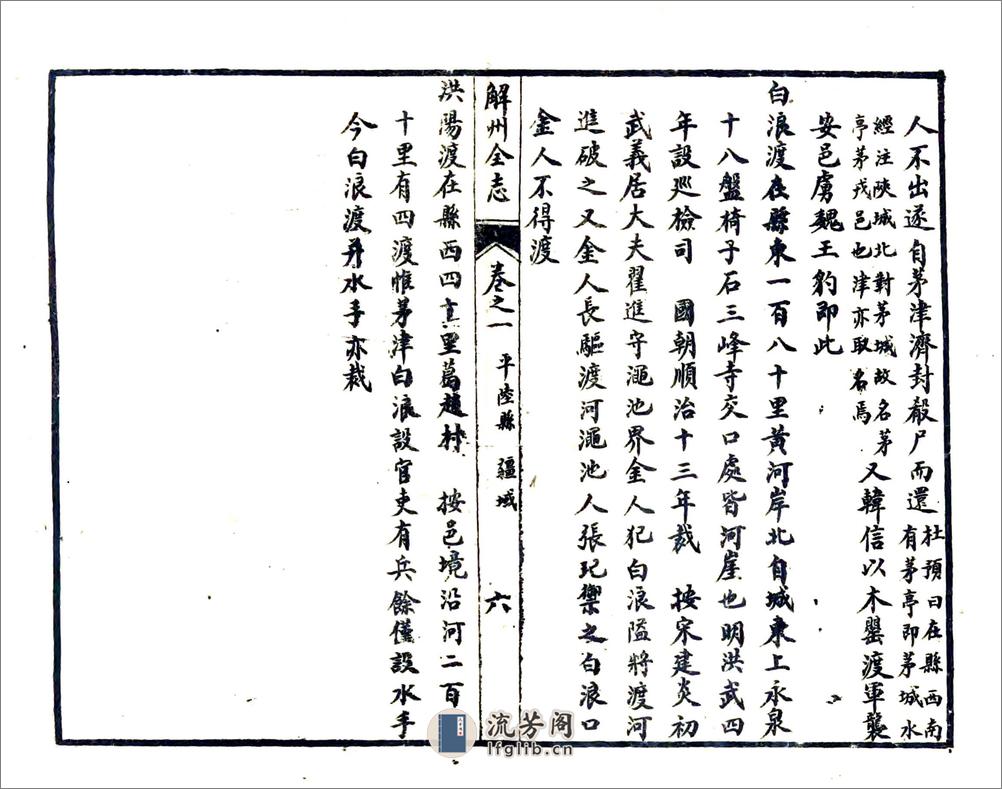 人不出遂自茅津濟封殽尸而還
杜預曰在縣西南
有茅亭即茅城水
經注陝城北對茅城故名茅
亭茅戎邑也津亦取名焉
又韓信以木罌渡軍襲
安邑虜魏王豹即此
白浪渡在縣東一百八十里黃河岸北自城東上永泉
十八盤椅子石三峰寺交口處皆河崖也明洪武四
年設巡檢司 國朝順治十三年裁 按宋建炎初
武義居大夫翟進守澠池界金人犯白浪隘將渡河
進破之又金人長驅渡河澠池人張玘禦之白浪口
金人不得渡
解州全志 卷之一 平陸縣 疆域 六
洪陽渡在縣西四里葛趙村 按邑境沿河二百
十里有四渡惟茅津白浪設官吏有兵餘僅設水手
今白浪渡并水手亦裁
流芳阁
lfglib.cn